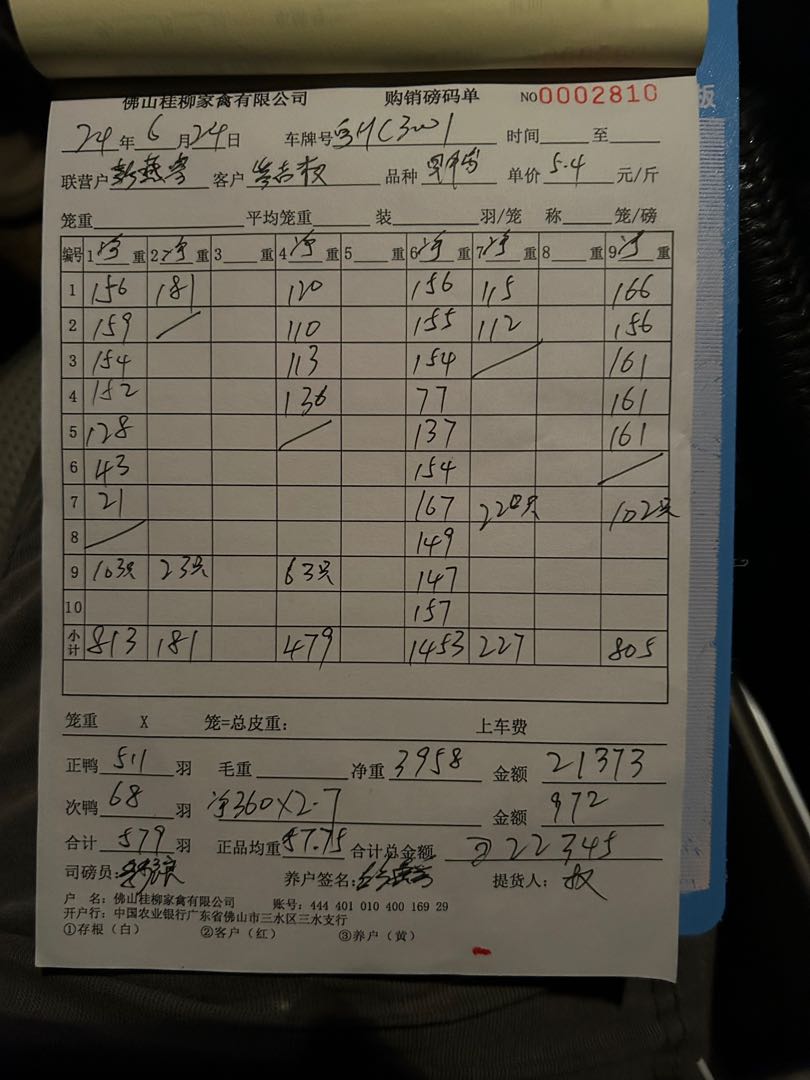 佛山桂柳家禽有限公司 购销磅码单 NO0002810
24年6月24日 车牌号 时间 至
联营户 客户 品种 单价5.4元/斤
笼重 平均笼重 装 羽/笼 称 笼/磅
编号 1净重 2净重 3 重 4净重 5 重 6净重 7净重 8 重 9净重
1 156 181 120 156 115 166
2 159 110 155 112 156
3 154 113 154 161
4 152 136 77 161
5 128 137 161
6 43 154
7 21 167 只 102只
8 149
9 103只 23只 63只 147
10 157
小计 813 181 479 1453 227 805
笼重 X 笼=总皮重: 上车费
正鸭511羽 毛重 净重3958 金额21373
次鸭68羽 净360X2.7 金额972
合计579羽 正品均重7.75 合计总金额22345
司磅员: 养户签名: 提货人: 权
户 名: 佛山桂柳家禽有限公司 账号: 444 401 010 400 169 29
开户行: 中国农业银行广东省佛山市三水区三水支行
①存根(白) ②客户(红) ③养户(黄)